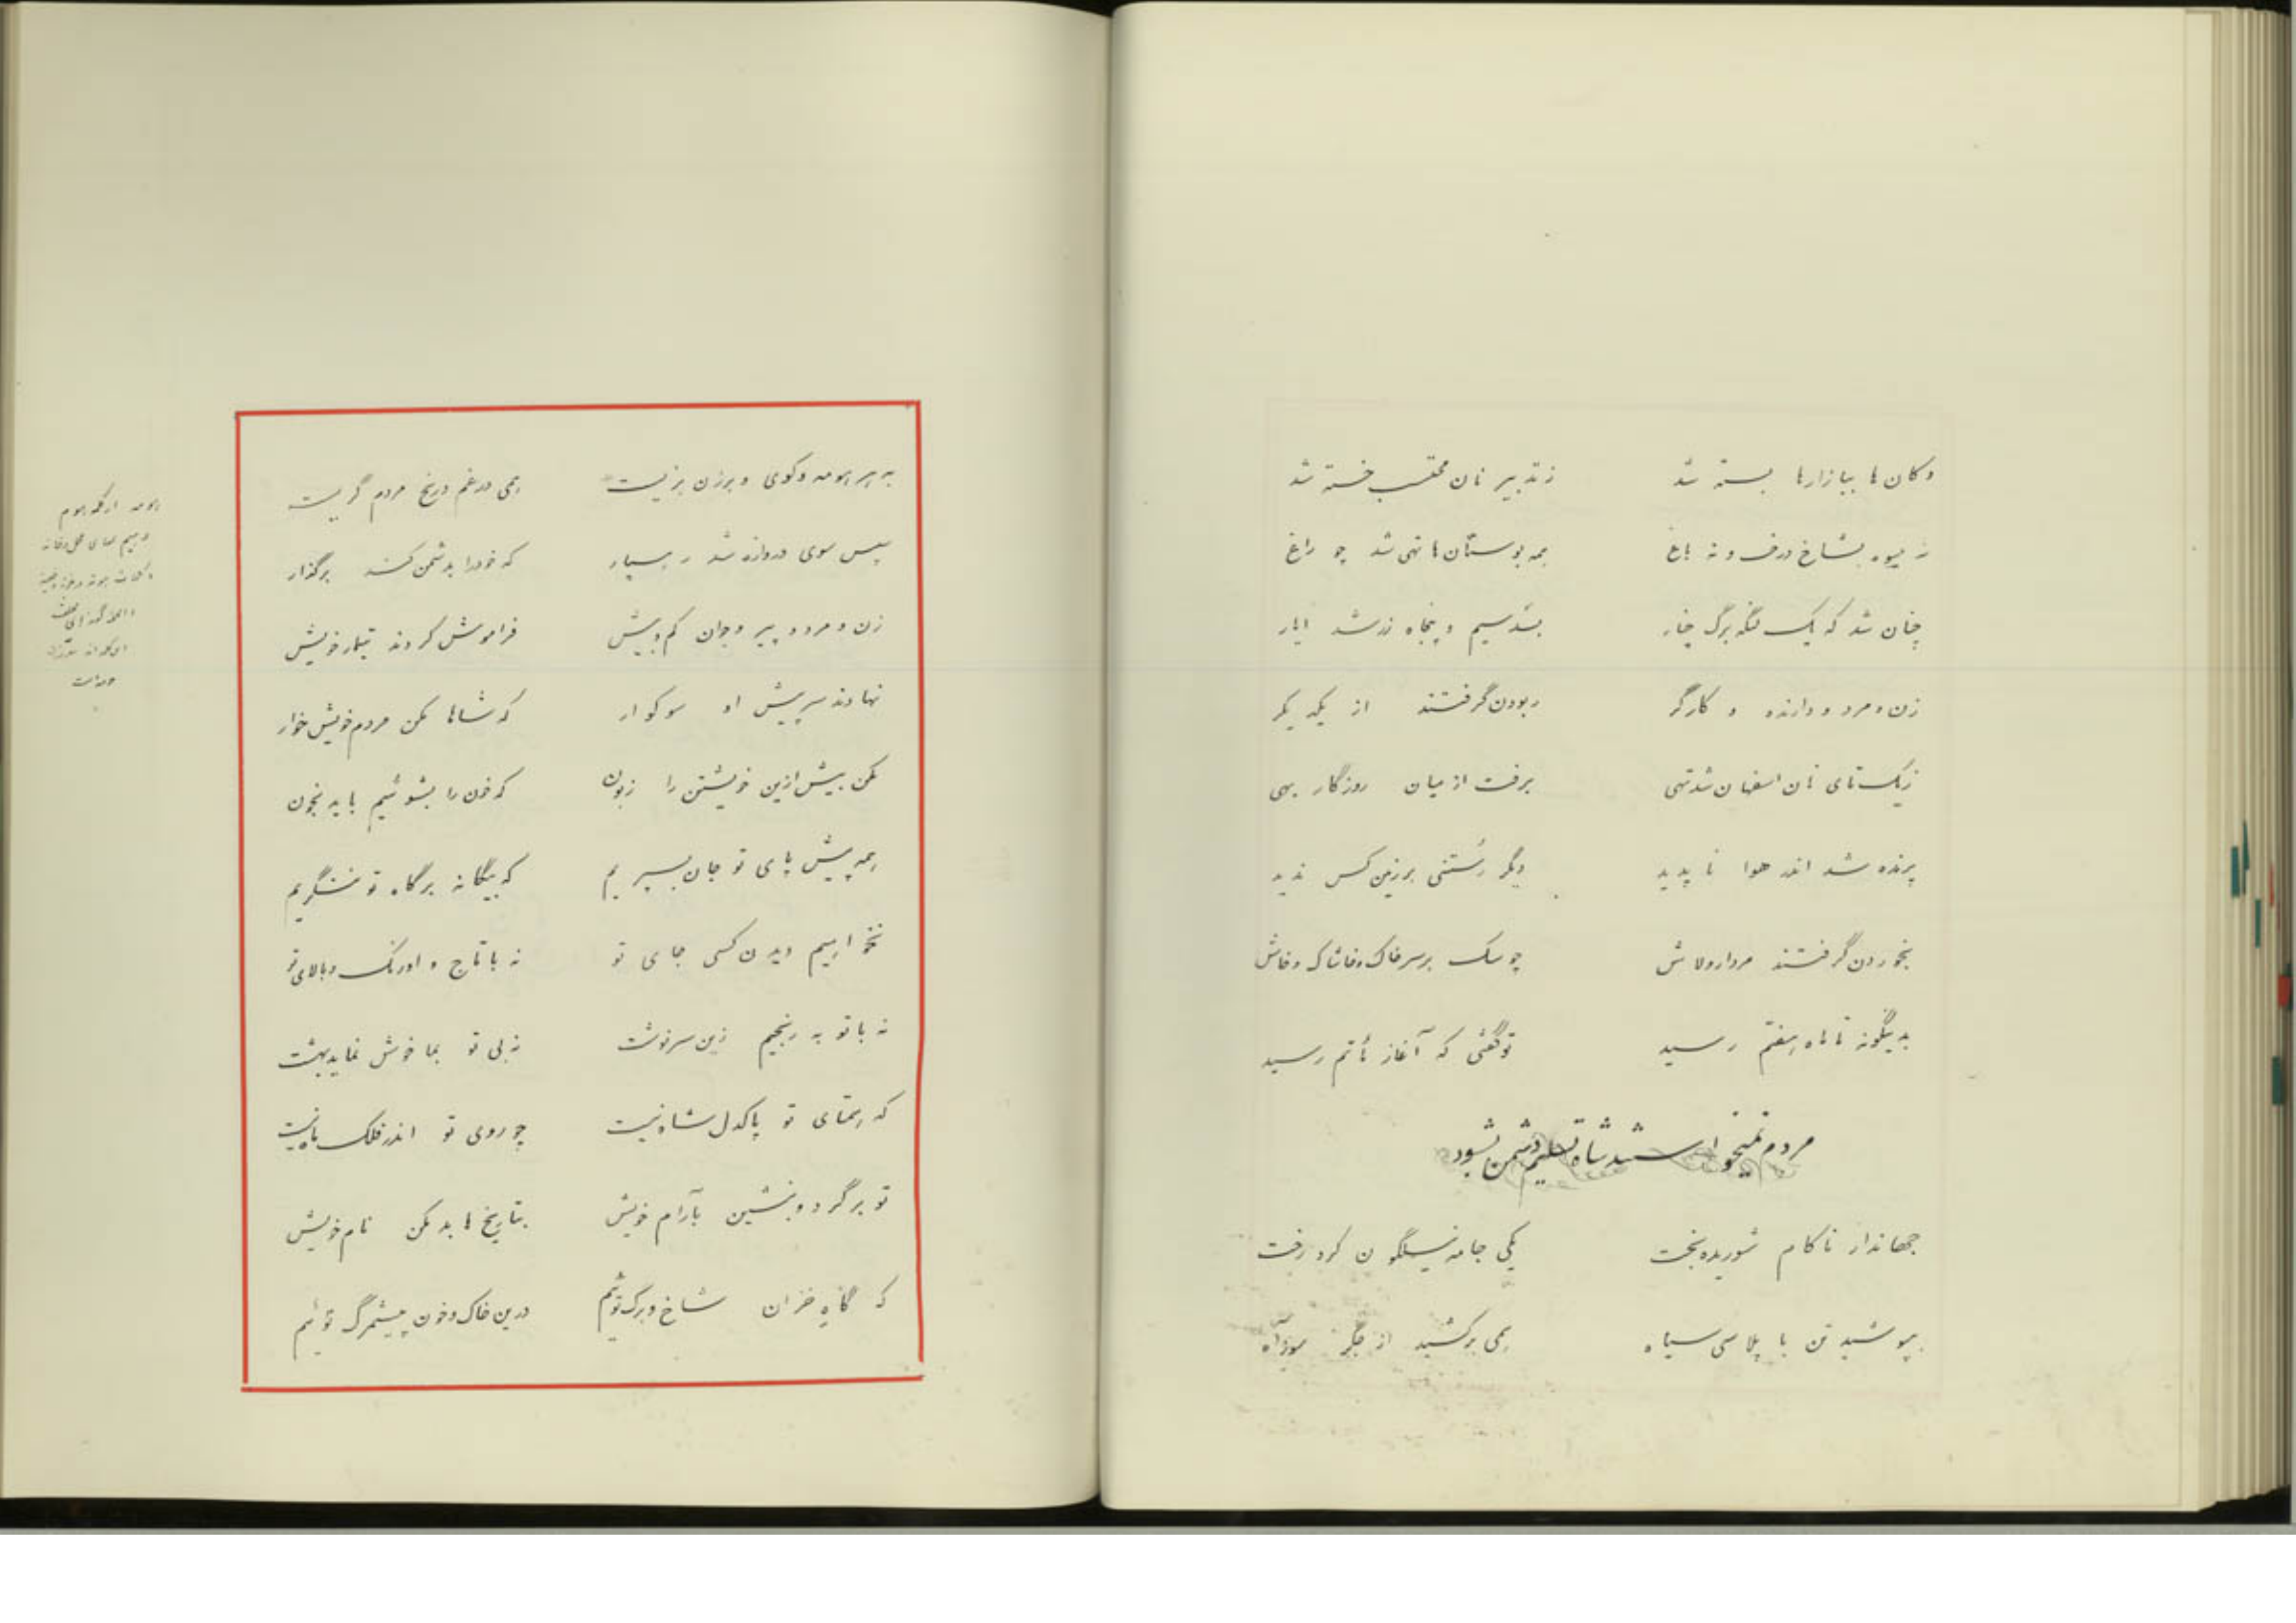 دکان ها ببازارها بسته شد زتدبیر نان محتسب خسته شد
نه میوه بشاخ درخت و نه باغ همه بوستان ها تهی شد چو راغ
چنان شد که یک لنگه برگ چنار بسد سیم و پنجاه زر شد
زن و مرد و دارنده و کارگر ربودن گرفتند از یکدیگر
زیک تای نان اسفهان شد تهی برفت از میان روزگار بهی
پرنده شد اندر هوا ناپدید دیگر رُستنی بر زمین کس ندید
بخوردن گرفتند مردار و لاش چو سگ بر سر خاک و خاشاک و خاش
بدینگونه تا ماه هفتم رسید توگفتی که آغاز ماتم رسید
مردم نمیخواستند شاه تسلیم دشمن بشود
جهاندار ناکام شوریده بخت یکی جامه نیلگون کرد رخت
بپوشید تن با پلاسی سیاه همی برکشید از جگر سوز آه
به هر هومه و کوی و برزن بزیست همی در غم و رنج مردم گریست
سپس سوی دروازه شد رهسپار که خود را بدشمن کند برگذار
زن و مرد و پیر و جوان کم و بیش فراموش کردند تیمار خویش
نهادند سر پیش او سوکوار که شاها مکن مردم خویش خوار
مکن بیش ازین خویشتن را زبون که خون را بشوئیم باید بخون
همه پیش پای تو جان بسپریم که بیگانه بر گاه تو ننگریم
نخواهیم دیدن کسی جای تو نه با تاج و اورنگ و بالای تو
نه با تو به رنجیم زین سرنوشت نه بی تو بما خوش نماید بهشت
که همتای تو پاکدل شاه نیست چو روی تو اندر فلک ماه نیست
تو برگرد و بنشین بآرام خویش بتاریخ ها بد مکن نام خویش
که گاهِ خزان شاخ و برگ توئیم درین خاک و خون پیشمرگ توئیم
هومه از کلمه هوم